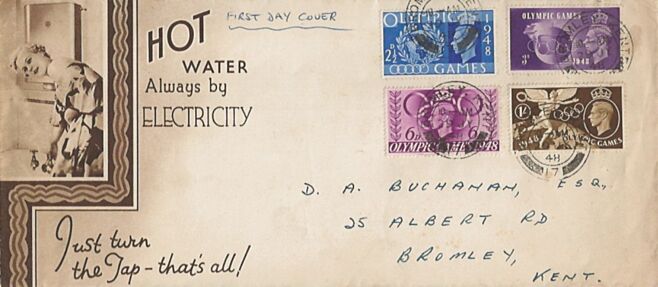 HOT
WATER
Always by
ELECTRICITY
FIRST DAY COVER
2½D 1948
OLYMPIC GAMES
OLYMPIC GAMES
3D 1948
6D 6D
OLYMPIC GAMES 1948
1/-
1948 OLYMPIC GAMES
48
17
D. A. BUCHANAN, ESQ,
25 ALBERT RD
BROMLEY,
KENT.
Just turn
the Tap - that's all!